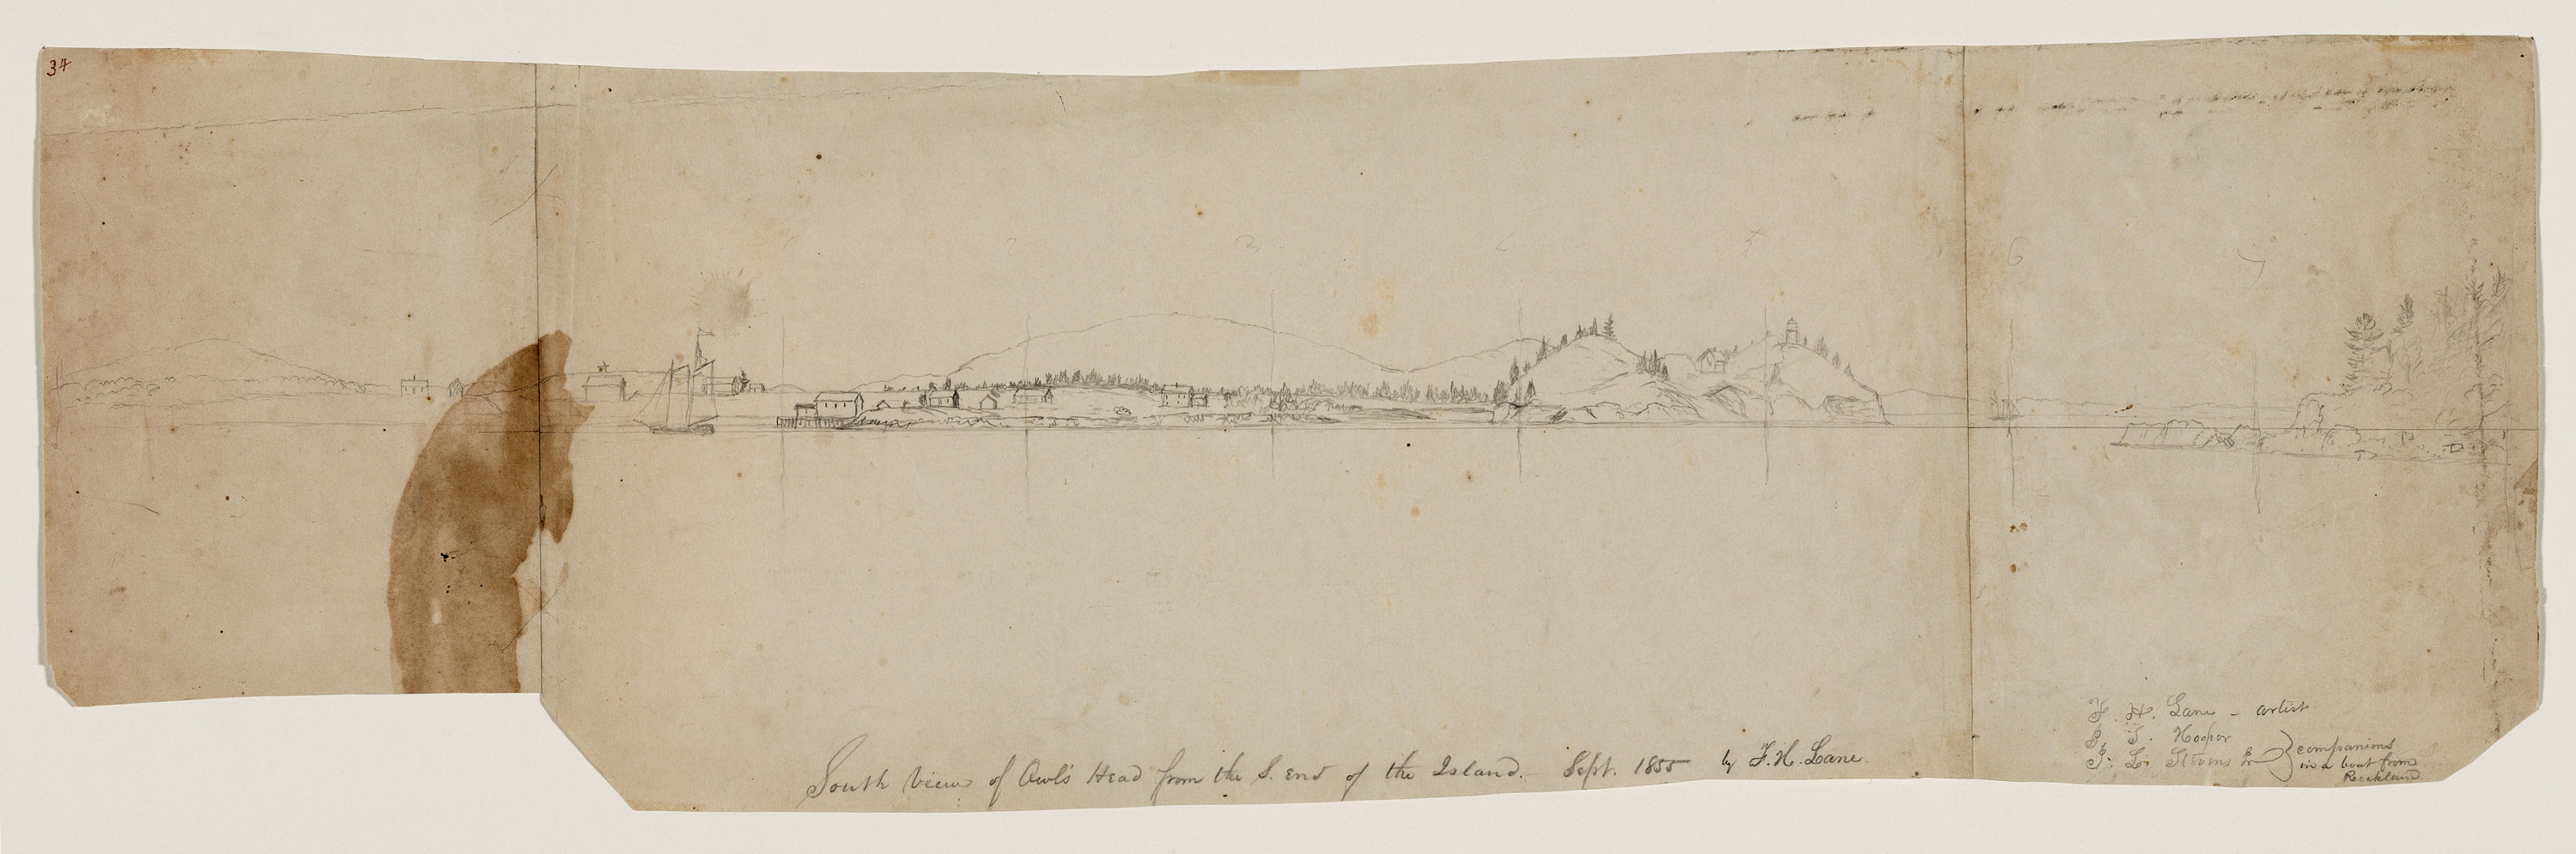 34
2 3 5 6 7
F. H. Lane - artist
S. Hooper
J. L. Stevens Jr. } companions
in a boat from
Rockland.
South View of Owl's Head from the S. end of the Island. Sept. 1855 by F. H. Lane.